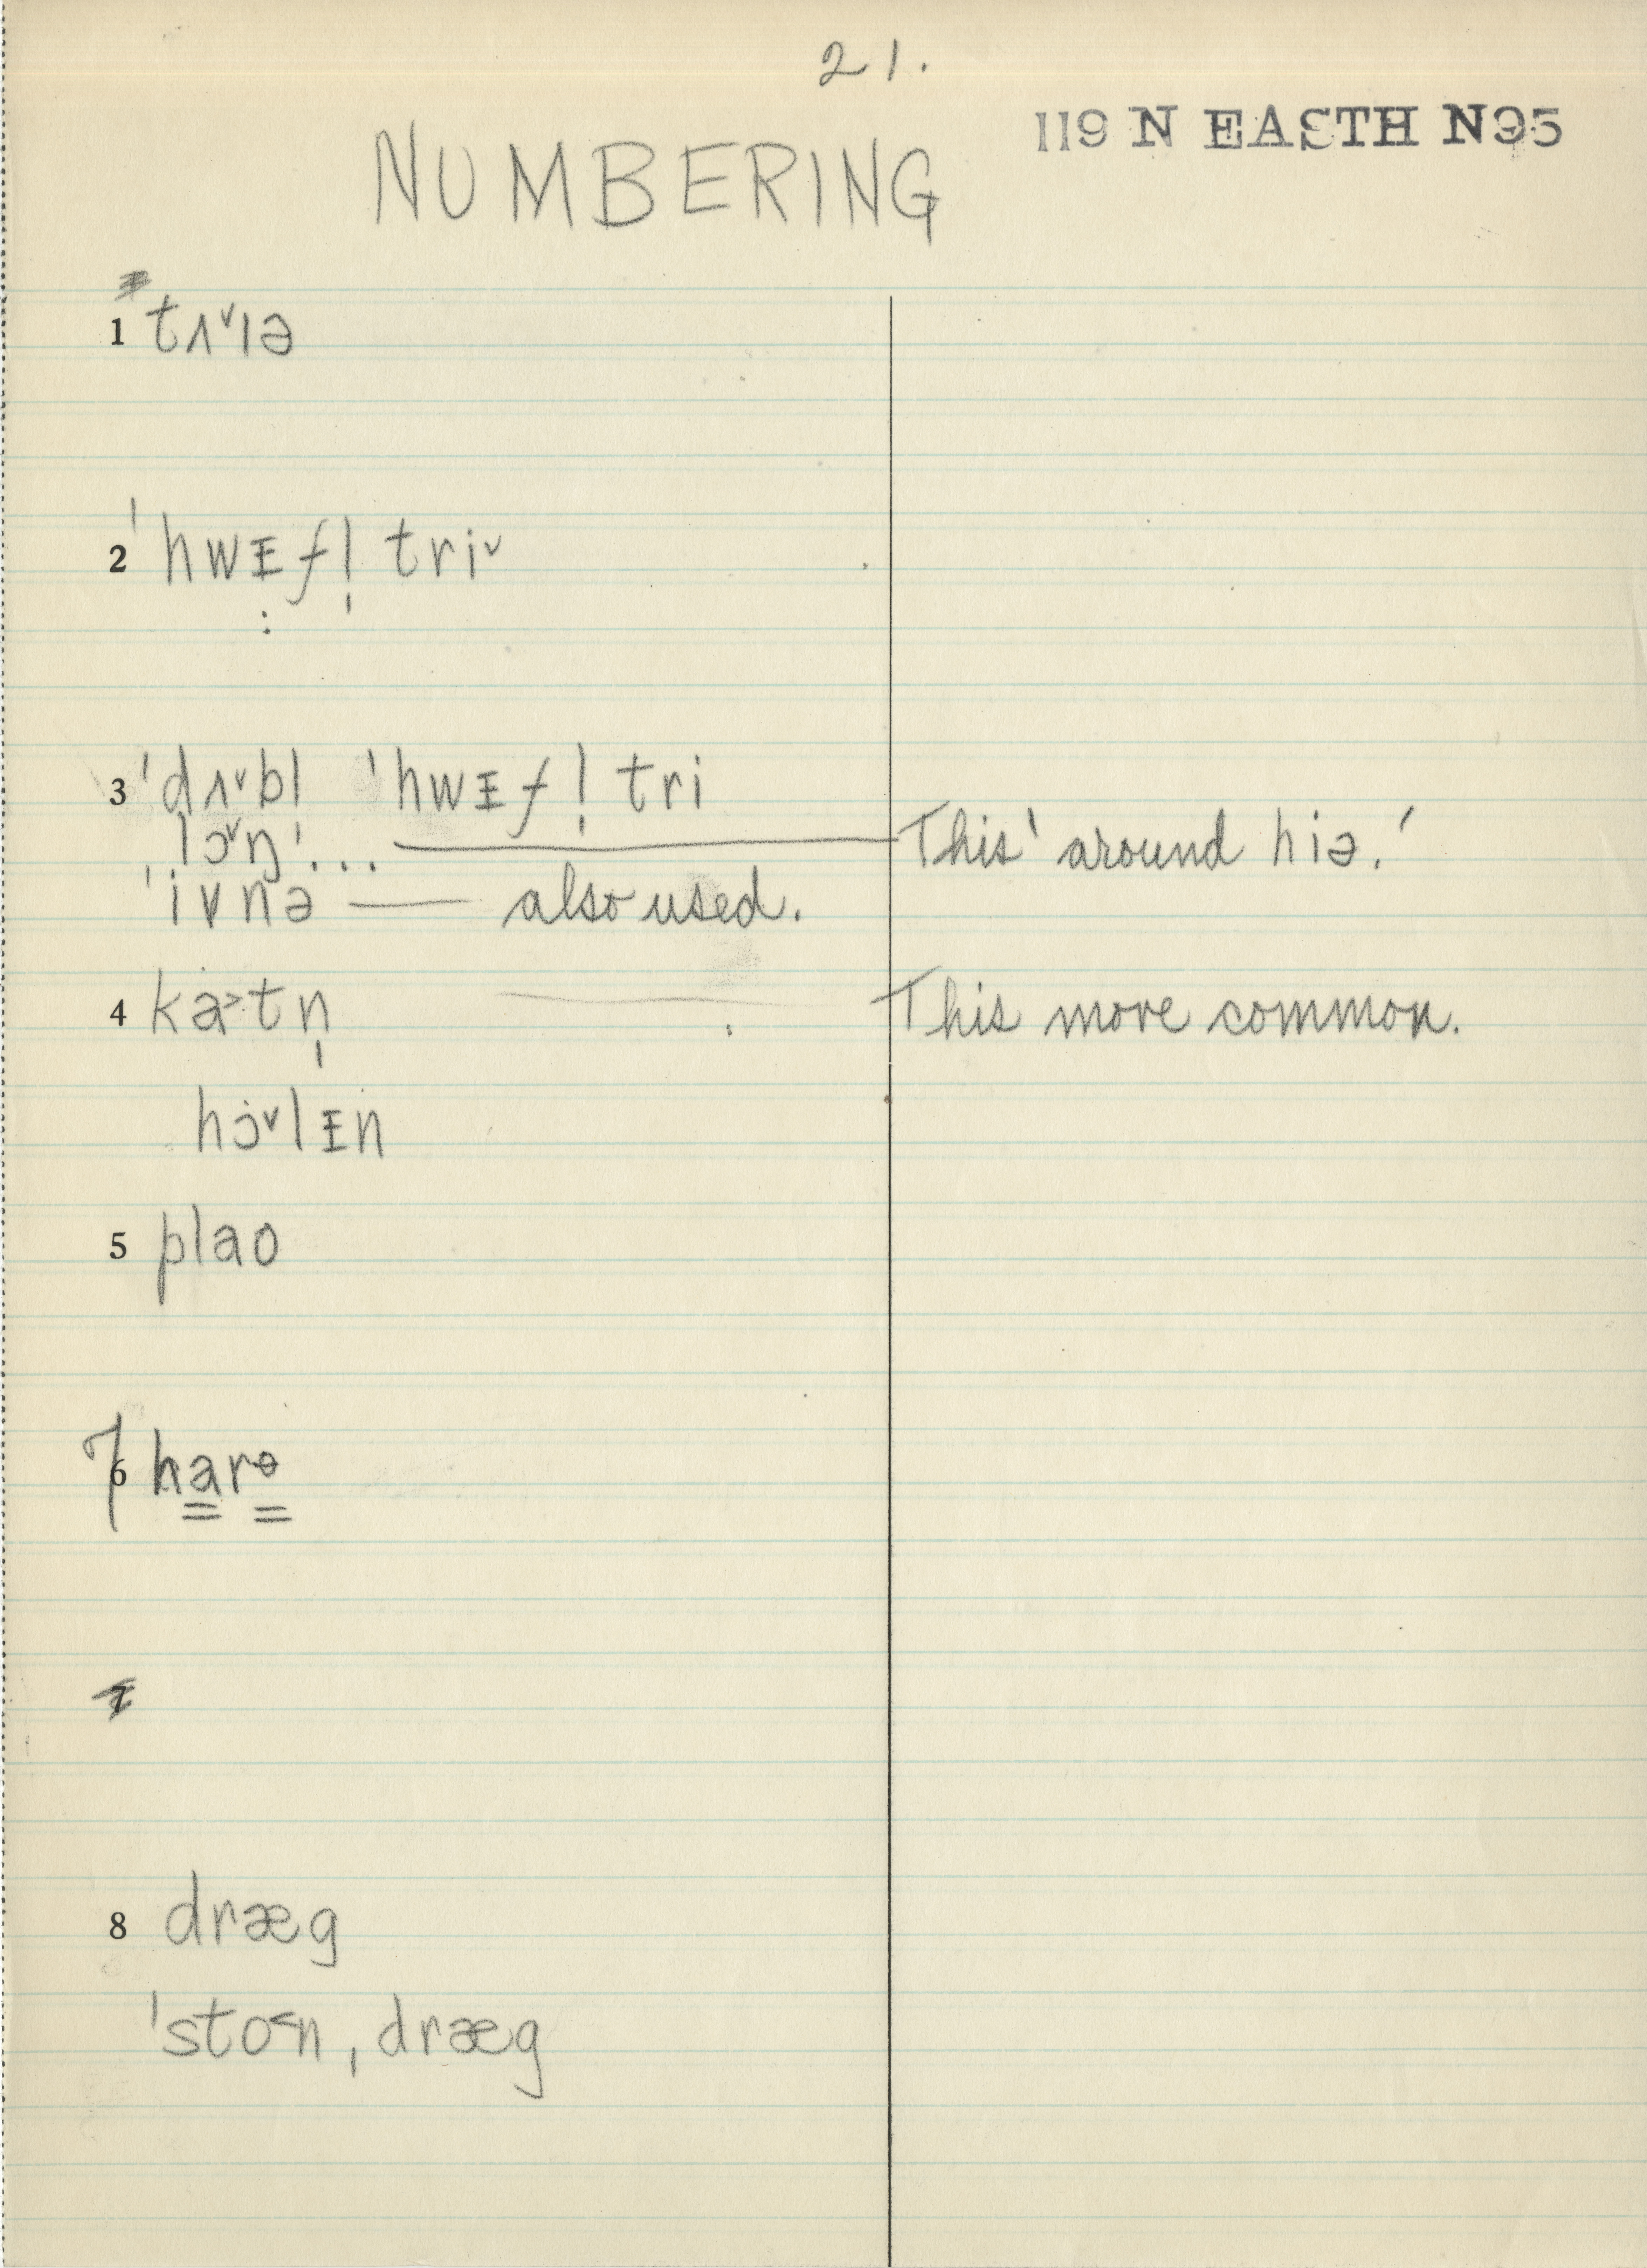 21.
119 N EASTH N95
NUMBERING
1 tʌ˅ɪə
2 ˈhwᵻfl̩ tri˅
3 ˈdʌ˅bl ˈhwᵻfl̩ tri
lɔ˅ŋ ... This ˈaround hiə.ˈ
ˈivnə — also used.
4 kȧ˃tn̩ This more common.
hɔ̇˅lᵻn
5 plao
7 6 harɵ
7
8 dræg
ˈsto˂nˌdræg